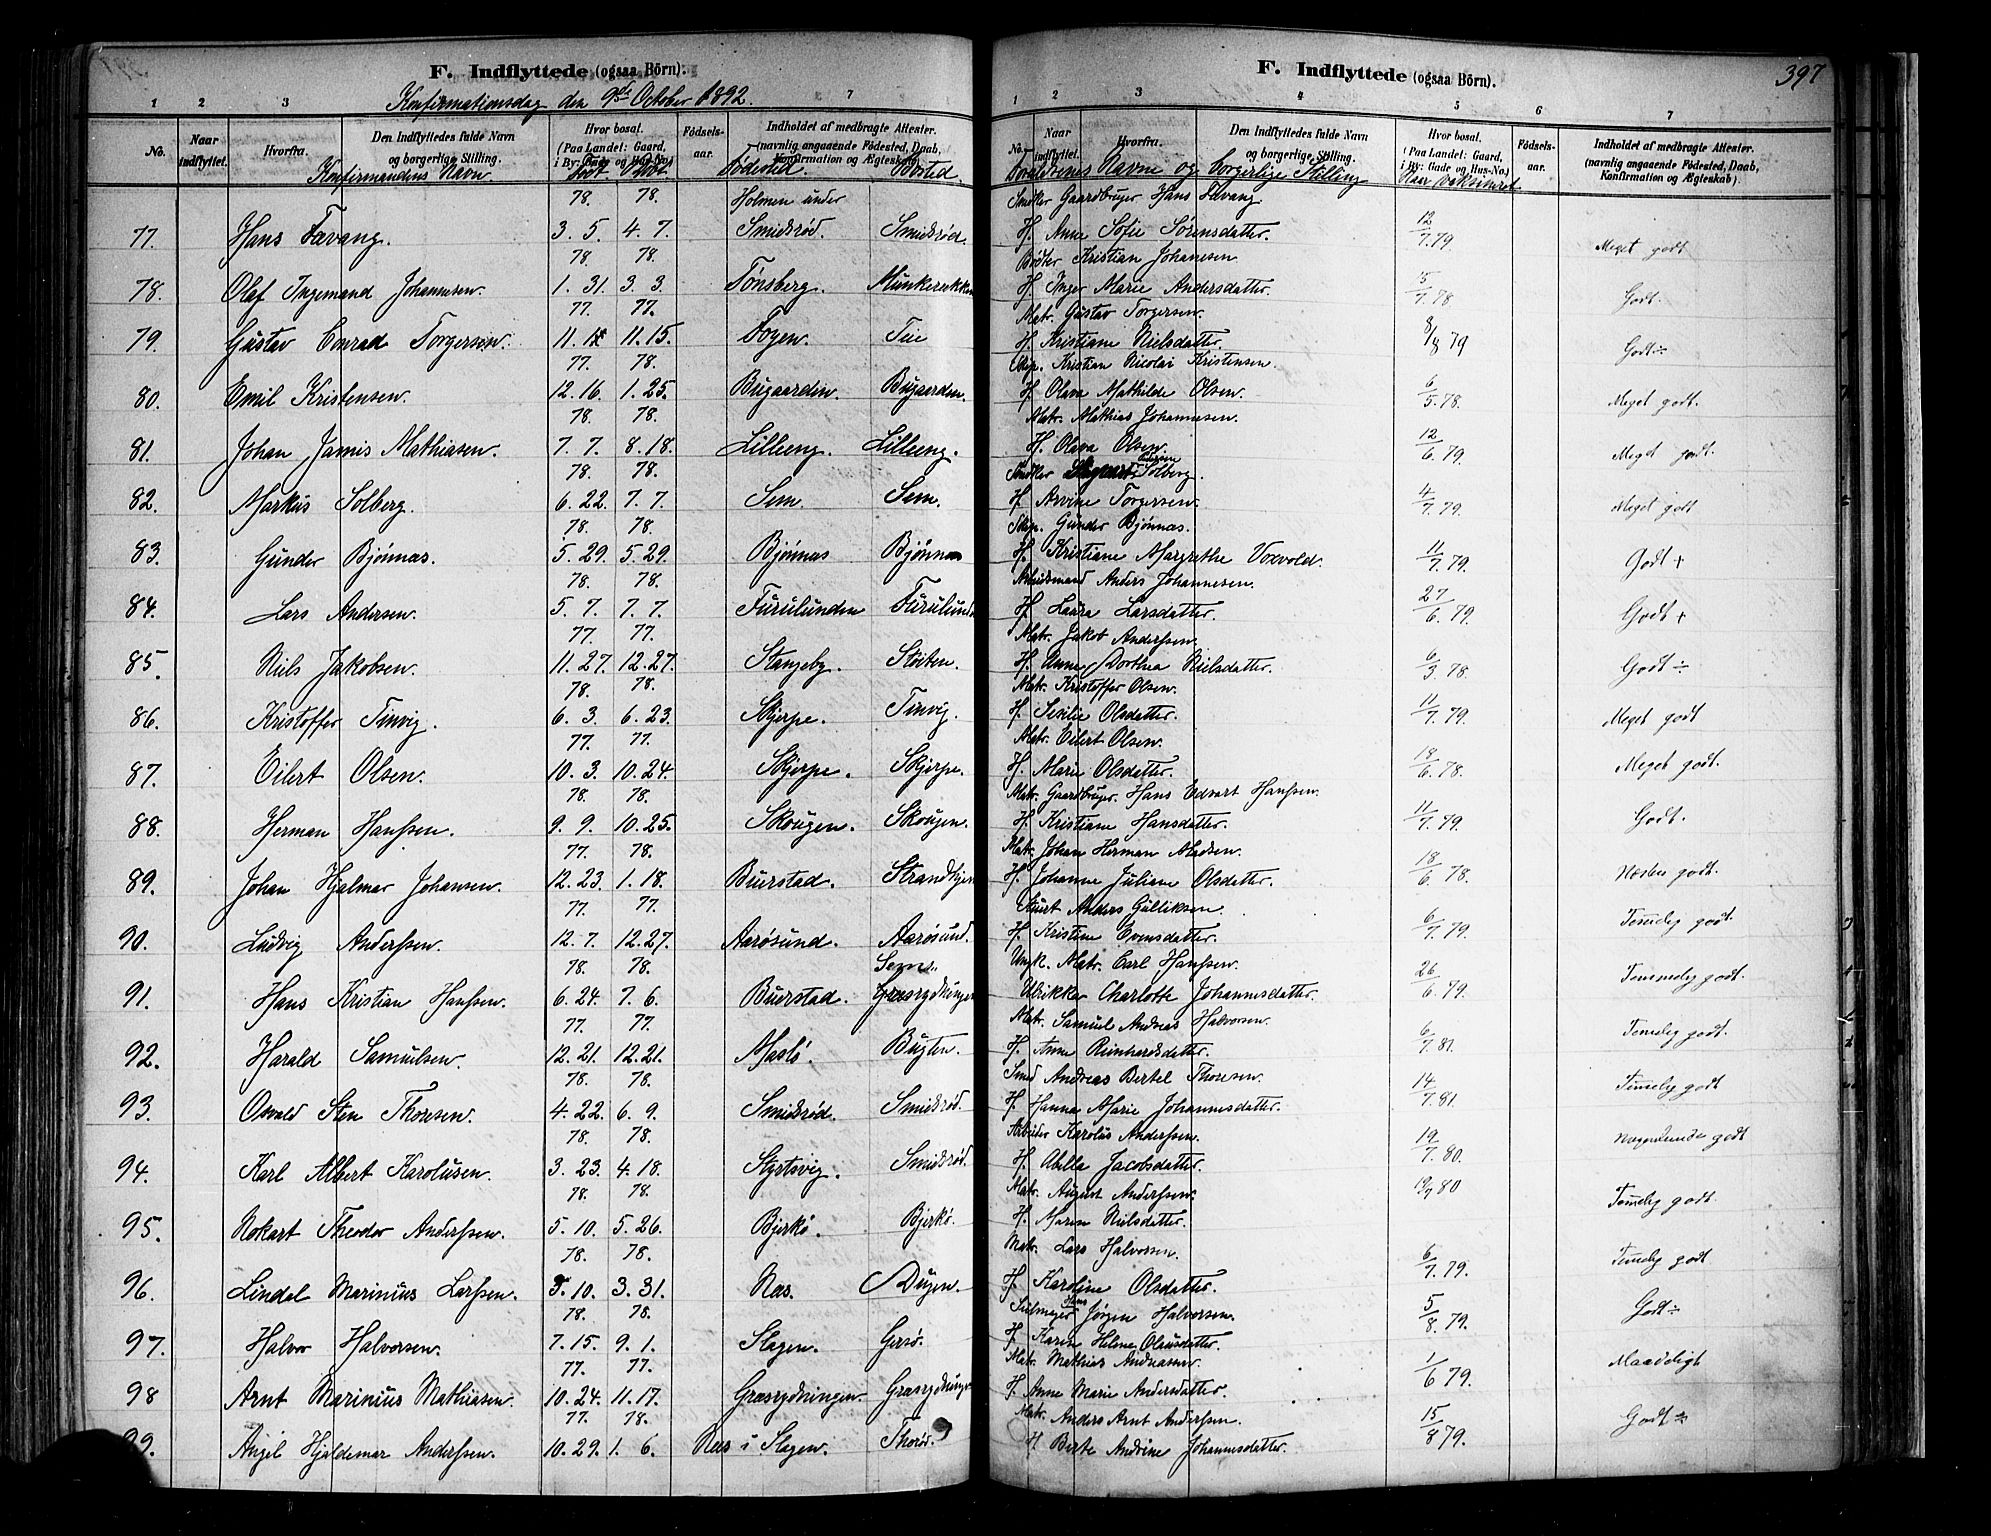 F. Indflyttede (ogsaa Börn).
Konfirmationsdag den 9de October 1892.
1 2 3 7
No. Naar indflyttet. Hvorfra. Den Indflyttedes fulde Navn og borgerlige Stilling. Hvor bosat. (Paa Landet: Gaard, i By: Gade og Hus-No.) Födsels-aar. Indholdet af medbragte Attester. (navnlig angaaende Födested, Daab, Konfirmation og Ægteskab).
Konfirmandens Navn Født Døbt Fødested Bosted
78. 78. Holmen under
77. Hans Favang. 3. 5. 4. 7. Smidsrød. Smidsrød.
78. 78.
78. Olaf Ingemand Johannesen. 1. 31. 3. 3. Tønsberg. Munkerekken
77. 77.
79. Gustav Conrad Torgersen. 11. 15. 11. 15. Togen. Teie
77. 78.
80. Emil Kristensen. 12. 16. 1. 25. Bugaarden. Bugaarden.
78. 78.
81. Johan Jamis Mathiassen. 7. 7. 8. 18. Lilleeng. Lilleeng.
78. 78.
82. Markus Solberg. 6. 22. 7. 7. Sem. Sem.
78. 78.
83. Gunder Bjønnas. 5. 29. 5. 29. Bjønnas Bjønnas
78. 78.
84. Lars Andersen. 5. 7. 7. 7. Furulunden Furulund
77. 77.
85. Niels Jakobsen. 11. 27. 12. 27. Stangeby. Støiten.
78. 78.
86. Kristoffer Tinvig. 6. 3. 6. 23. Skjerpe. Tinvig.
77. 77.
87. Eilert Olsen. 10. 3. 10. 24. Skjerpe. Skjerpe.
78. 78.
88. Herman Hanssen. 9. 9. 10. 25. Skougen. Skougen.
77. 78.
89. Johan Hjalmar Johansen. 12. 23. 1. 18. Buerstad. Strandhjem
77. 77.
90. Ludvig Anderssen. 12. 7. 12. 27. Aarøsund. Aarøsund.
78. 78. Sems
91. Hans Kristian Hanssen. 6. 24. 7. 6. Buerstad. Græsrydningen
77. 77.
92. Harald Samuelsen. 12. 21. 12. 21. Maslø. Bugten.
78. 78.
93. Osvald Sten Thoresen. 4. 22. 6. 9. Smidsrød. Smidsrød.
78. 78.
94. Karl Albert Karolusen. 3. 23. 4. 18. Styrsvig. Smidsrød.
78. 78.
95. Nokart Theodor Anderssen. 5. 10. 5. 26. Bjerkø. Bjerkø.
78. 78.
96. Lindal Marinius Larssen. 3. 10. 3. 31. Nes. Dugen.
78. 78.
97. Halvor Halvorsen. 7. 15. 9. 1. Slagen. Gersø.
77. 77.
98 Arnt Marinius Mathiassen. 10. 24. 11. 17. Græsrydningen. Græsrydninge
77. 78.
99. Angel Hjeldemar Anderssen. 10. 29. 1. 6. Nes i Slagen. Thorød.
F. Indflyttede (ogsaa Börn). 397
1 2 3 4 5 6 7
Naar indflyttet. Hvorfra. Den Indflyttedes fulde Navn og borgerlige Stilling. Hvor bosat. (Paa Landet: Gaard, i By: Gade og Hus-No.) Födsels-aar. Indholdet af medbragte Attester. (navnlig angaaende Födested, Daab, Konfirmation og Ægteskab).
Forældrenes Navne og borgerlige Stilling Naar vakcineret
Snedker Gaardbruger Hans Favang.
H. Anne Sofie Sørensdatter. 12/7. 79 Meget godt
Bødker Kristian Johanesen
H. Inger Marie Andersdatter. 15/7. 78. Godt.
Matr. Gustav Torgersen.
H. Kristiane Nielsdatter. 8/8 79 Godt ÷
Skip. Kristian Nicolai Kristensen
H. Olava Mathilde Olsen. 6/5. 78. Meget godt.
Matr. Mathias Johannesen.
H. Olava Olsen. 12/6. 79. Meget godt.
Snedker Solberg.
H. Arvine Torgersen. 4/7. 79. Meget godt
Skip. Gunder Bjønnas.
H. Kristiane Margrethe Voxvold. 11/7. 79. Godt +
Arbeidsmand Anders Johannesen.
H. Laura Larsdatter. 27/6. 79. Godt +
Matr. Jakob Anderssen.
H. Anne Dorthea Nielsdatter. 6/3 78. Godt ÷
Matr. Kristoffer Olsen.
H. Sesilie Olsdatter. 11/7. 79. Meget godt
Matr. Eilert Olsen.
H. Marie Olsdatter. 18/6. 78. Meget godt.
Matr. Gaardbruger. Hans Edvart Hanssen.
H. Kristiane Hansdatter. 11/7. 79. Godt.
Matr. Johan Herman Madsen.
H. Johanne Juliane Olsdatter. 18/6. 78. Næsten godt.
Stuert Anders Gulliksen.
H. Kristine Evensdatter. 6/7. 79. Temelig godt.
Ungk. Matr. Carl Hanssen.
Ulrikke Charlotte Johannesdatter. 26/6. 79. Temmelig godt.
Matr. Samuel Andreas Halvorsen.
H. Anne Reinhardsdatter. 6/7. 81. Temelig godt.
Smed Andreas Bertel Thoresen.
H. Hanna Marie Johannesdatter. 14/7. 81. Temelig godt
Arbeider Karolus Anderssen.
H. Abella Jacobsdatter. 19/7. 80. Nogenlunde godt
Matr. August Anderssen.
H. Maren Nielsdatter. 19/7 80 Temelig godt
Matr. Lars Halvorsen.
H. Karoline Olsdatter. 6/7. 79. Temelig godt
Seilmager Hans Jørgen Halvorsen.
H. Karen Helene Olausdatter. 5/8. 79. Godt ÷
Matr. Mathias Andreassen
H. Anne Marie Andersdatter. 1/6 79. Maadeligt
Matr. Anders Arnt Anderssen.
H. Berte Andrine Johannesdatter. 15/8 79. Godt ÷